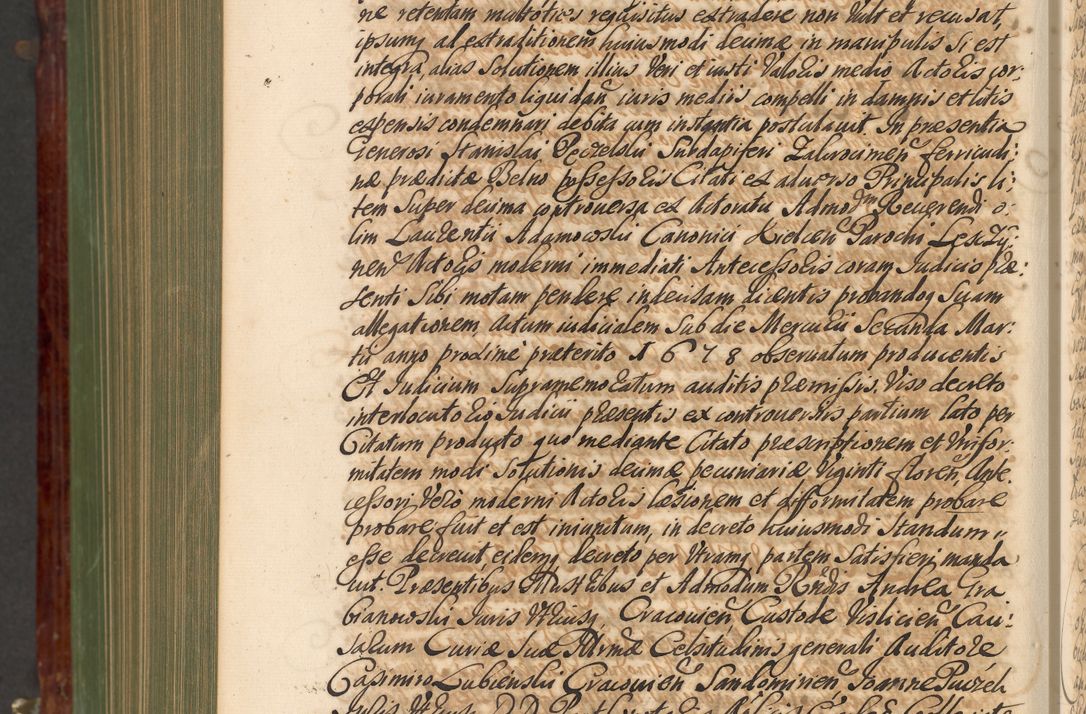 ne retentam multoties requisitus extradere non vult et recusat
ipsum, ad extraditionem huiusmodi decimæ in manipulis si est
integra, alias Solutionem illius veri et iusti Valoris medio Actoris cor:
porali iuramento liquidan̄ iuris mediis compelli in damnis et litis
expensis condemnari debita cum instantia postulavit. In præsentia
Generosi Stanislai Subdapiferi
næ præditæ Belno possessoris Citati ex adverso Principalis li:
tem Super decima controversa ex Actoratu Admodm̄ Reverendi o:
lim Laurentii Adamowski Canonici Kielcen̄ Parochi
nen̄ Actoris moderni immediati Antecessoris coram Judicio præ:
senti Sibi motam pendere indecisam dicentis probandoq Suam
allegationem Actum iudicialem Sub die Mercurii Secunda Mar:
tii anno proxime præterito 1678 observatum producentis
Et Judicium Supramemoratum auditis præmissis. Viso decreto
interlocutorio Judicii præsentis ex controversiis partium lato per
Citatum producto quo mediante Citato præscriptionem et Unifor:
mitatem modi Solutionis decimæ pecuniariæ Viginti floren̄, Ante:
cessori Vero, moderni Actoris læsionem et difformitatem probare
probare fuit et est iniunctum, in decreto huiusmodi Standum
esse decrevit, eidemq decreto per Utramq partem Satisfieri manda
vit. Præsentibus Illustribus et Admodum Rndis Andrea Gra
bianowski Juris Utriusq, Cracovien̄ Custode Vislicien̄ Cau:
sarum Curiæ Suæ Illrmæ Celsitudinis generali Auditore
Casimiro Łubienski Cracovien̄ Sandomirien̄, Joanne